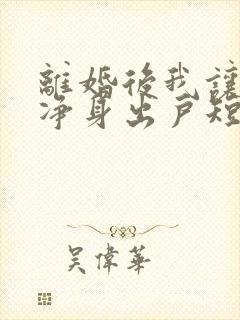 離婚後我讓
净身出戸短
吴偉華